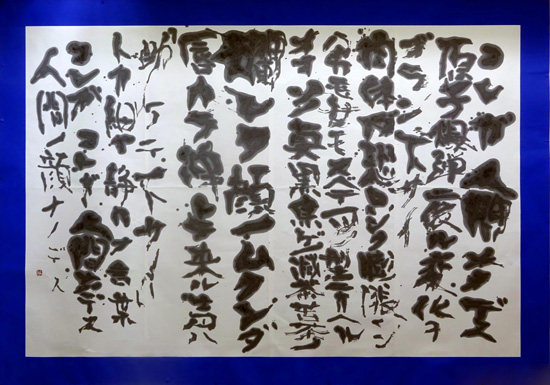 コレガ人間ナノデス
原子爆弾ニ依ル変化ヲ
ゴラン下サイ
肉体ガ恐ロシク膨脹シ
男モ女モスベテ一ツノ型ニカヘル
オオソノ真黒焦ゲノ滅茶苦茶ノ
爛レタ顔ノムクンダ
唇カラ洩レテ来ル声ハ
助ケテ下サイ
トカ細イ静カナ言葉
コレガコレガ人間ナノデス
人間ノ顔ナノデス